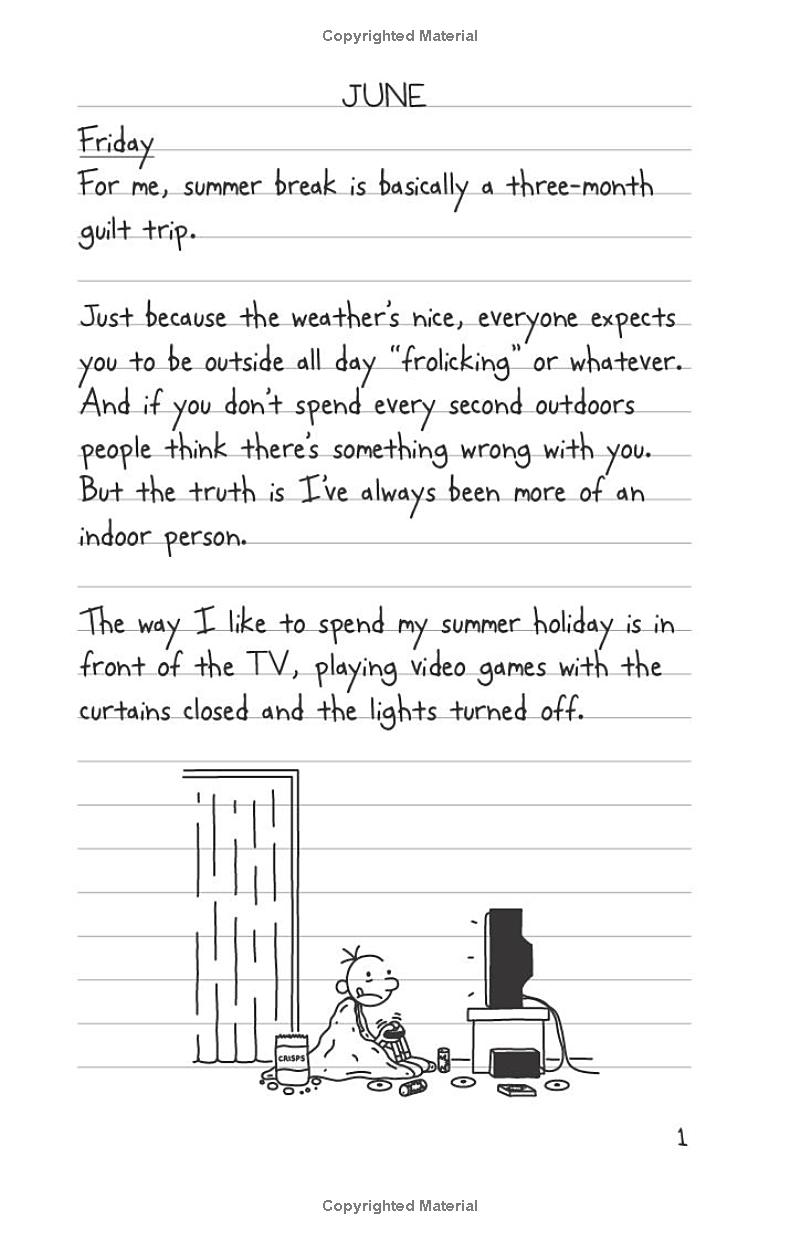 Copyrighted Material
JUNE
Friday
For me, summer break is basically a three-month
guilt trip.
Just because the weather's nice, everyone expects
you to be outside all day “frolicking” or whatever.
And if you don't spend every second outdoors
people think there's something wrong with you.
But the truth is I've always been more of an
indoor person.
The way I like to spend my summer holiday is in
front of the TV, playing video games with the
curtains closed and the lights turned off.
CRISPS
1
Copyrighted Material